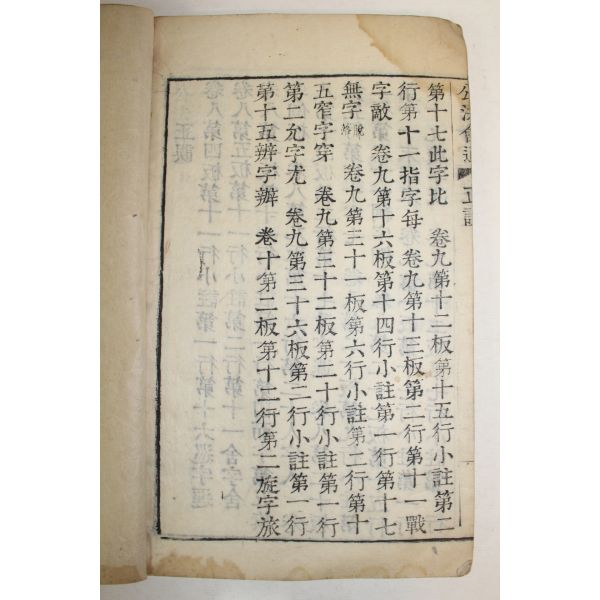 公法會通 正誤
第十七此字比 卷九第十二板第十五行小註第二
行第十一指字每 卷九第十三板第二行第十一戰
字敵 卷九第十六板第十四行小註第一行第十七
無字脫落 卷九第三十一板第六行小註第二行第十
五窄字穿 卷九第三十二板第二十行小註第一行
第二允字尤 卷九第三十六板第二行小註第一行
第十五辨字辦 卷十第二板第十二行第二旋字旅